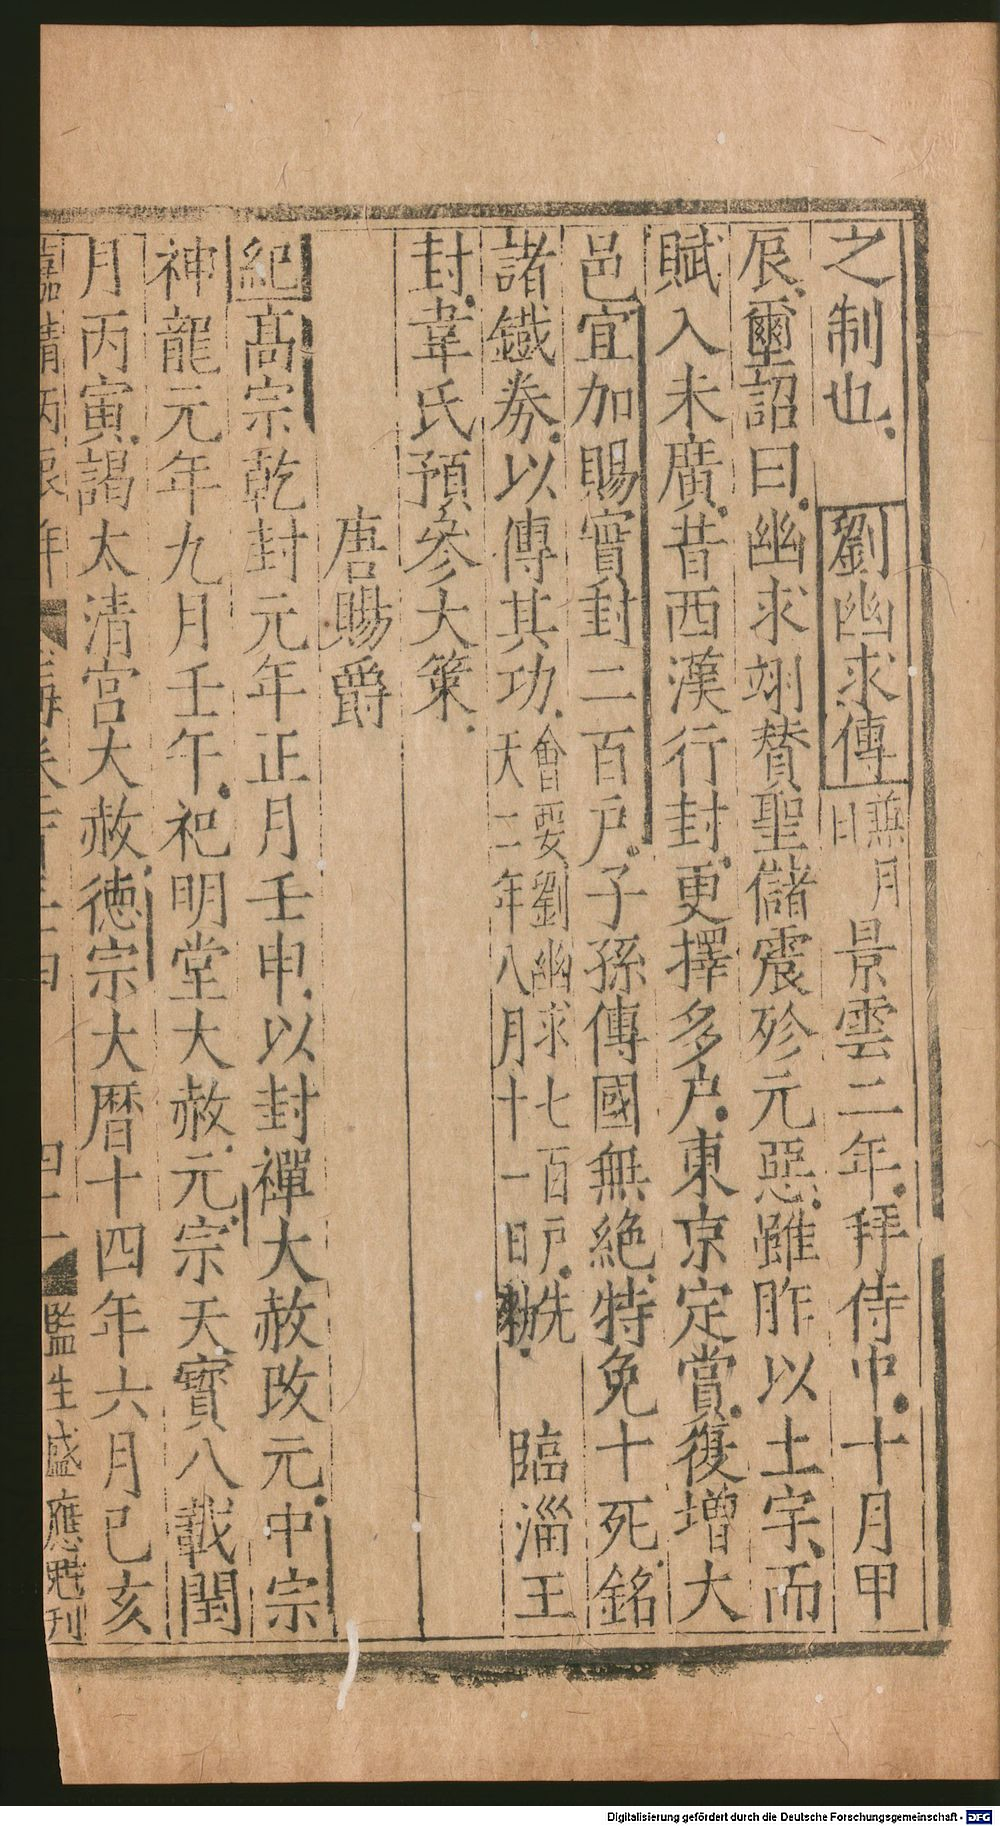 之制也 劉幽求傳 無月日 景雲二年拜侍中十月甲
辰璽詔曰幽求翊賛聖儲震殄元惡雖胙以土宇而
賦入未廣昔西漢行封更擇多户東京定賞復增大
邑宜加賜實封二百戶子孫傳國無絶特免十死銘
諸鐵券以傳其功 會要劉幽求七百戶先天二年八月十一日勑 臨淄王
封韋氏預參大策
唐賜爵
紀高宗乾封元年正月壬申以封禪大赦改元中宗
神龍元年九月壬午祀明堂大赦元宗天寳八載閏
月丙寅謁太清宫大赦徳宗大暦十四年六月已亥
嘉靖丙辰年 海卷 四十一 監生盛應魁刊
Digitalisierung gefördert durch die Deutsche Forschungsgemeinschaft - DFG